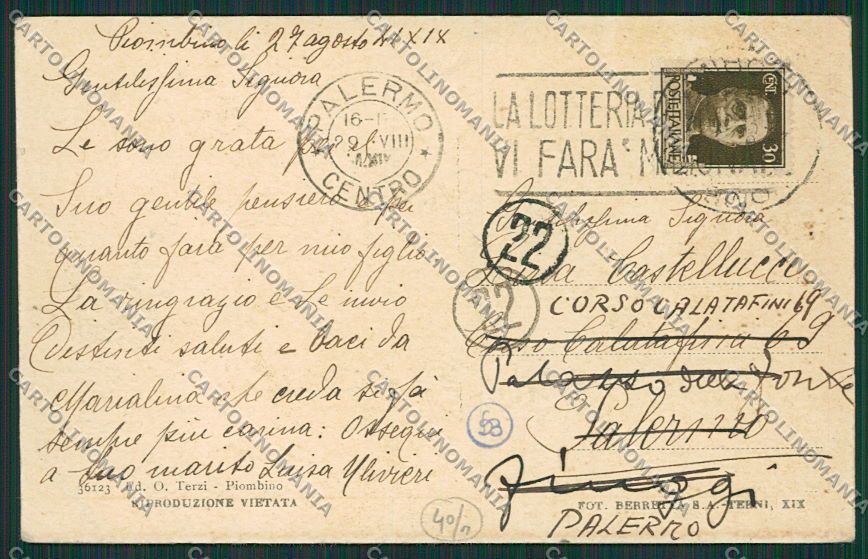 Piombino li 27 agosto XIX
Gentilissima Signora
Le sono grata pel
Suo gentile pensiero e per
quanto farà per mio figlio
La ringrazio e Le invio
distinti saluti e baci da
Marialina che creda si fà
sempre più carina: Ossequi
a Suo marito Luisa Ulivieri
36123 Ed. O. Terzi - Piombino
RIPRODUZIONE VIETATA
PALERMO
16-
29 VIII
CENTRO
LA LOTTERIA
VI FARA'
POSTE ITALIANE
CENT. 30
22
22
Signora
Castellucci
CORSO CALATAFINI 69
Corso Calatafini 69
Palazzo delle
Palermo
PALERMO
53
40/n
FOT. BERRETTA S.A.-TERNI, XIX
CARTOLINOMANIA